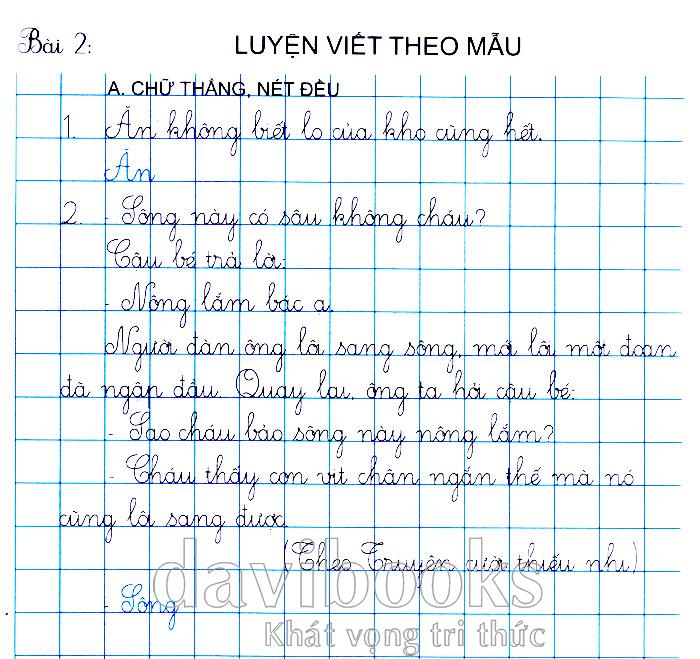 Bài 2: LUYỆN VIẾT THEO MẪU
A. CHỮ THẲNG, NÉT ĐỀU
1. Ăn không biết lo của kho cũng hết.
Ăn
2. - Sông này có sâu không cháu?
Cậu bé trả lời:
- Nông lắm bác ạ.
Người đàn ông lội sang sông, mới lội một đoạn
đã ngập đầu. Quay lại, ông ta hỏi cậu bé:
- Sao cháu bảo sông này nông lắm?
- Cháu thấy con vịt chân ngắn thế mà nó
cũng lội sang được.
(Theo Truyện cười thiếu nhi)
- Sông
davibooks
Khát vọng tri thức